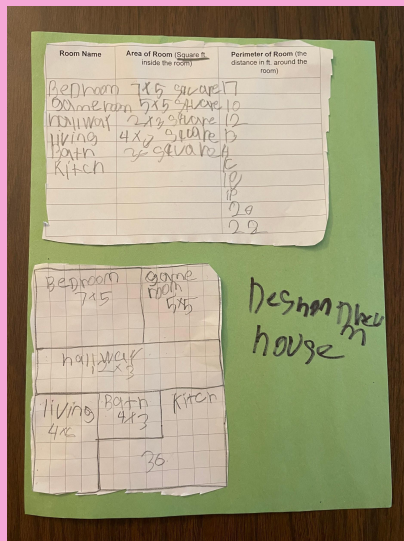 Room Name
Area of Room (Square ft. inside the room)
Perimeter of Room (the distance in ft. around the room)
Bedroom 7x5 square 17
gameroom 5x5 square 10
hallway 2x3 square 12
living 4x square
Bath square
Kitch
20
22
Bedroom
7x5
game
room
5x5
hallway
2x3
living
4x
Bath
4x3
Kitch
36
house